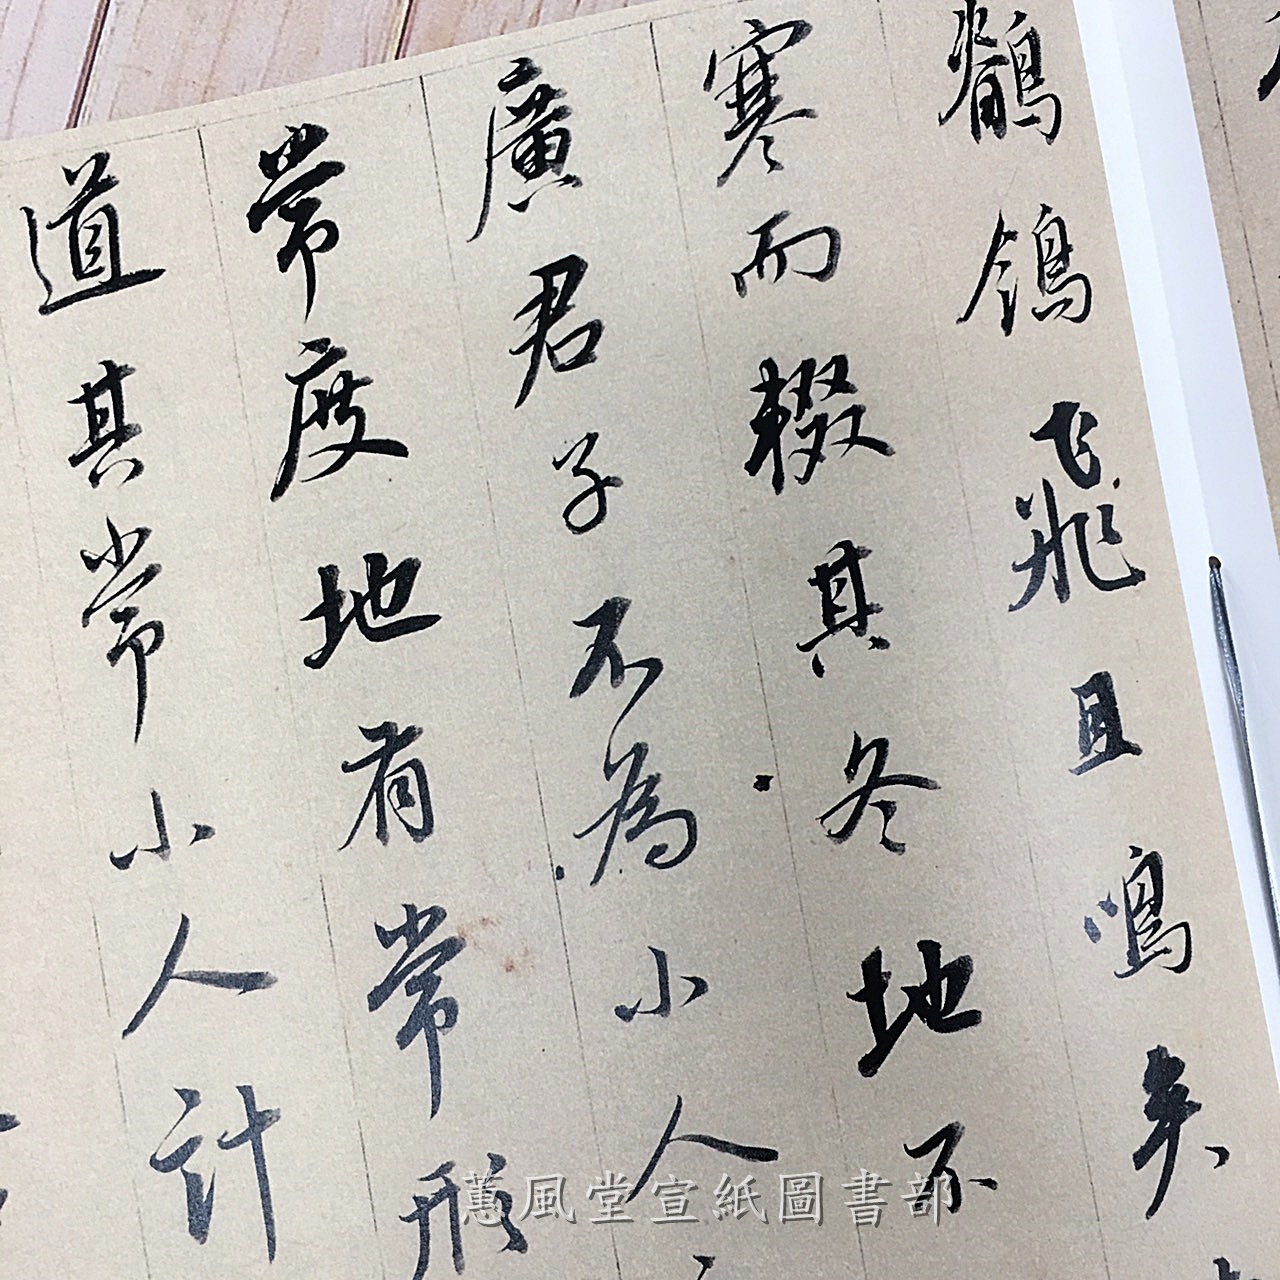 鶺鴒飛且鳴矣
寒而輟其冬地不
廣君子不為小人
常度地有常形
道其常小人計
蕙風堂宣紙圖書部